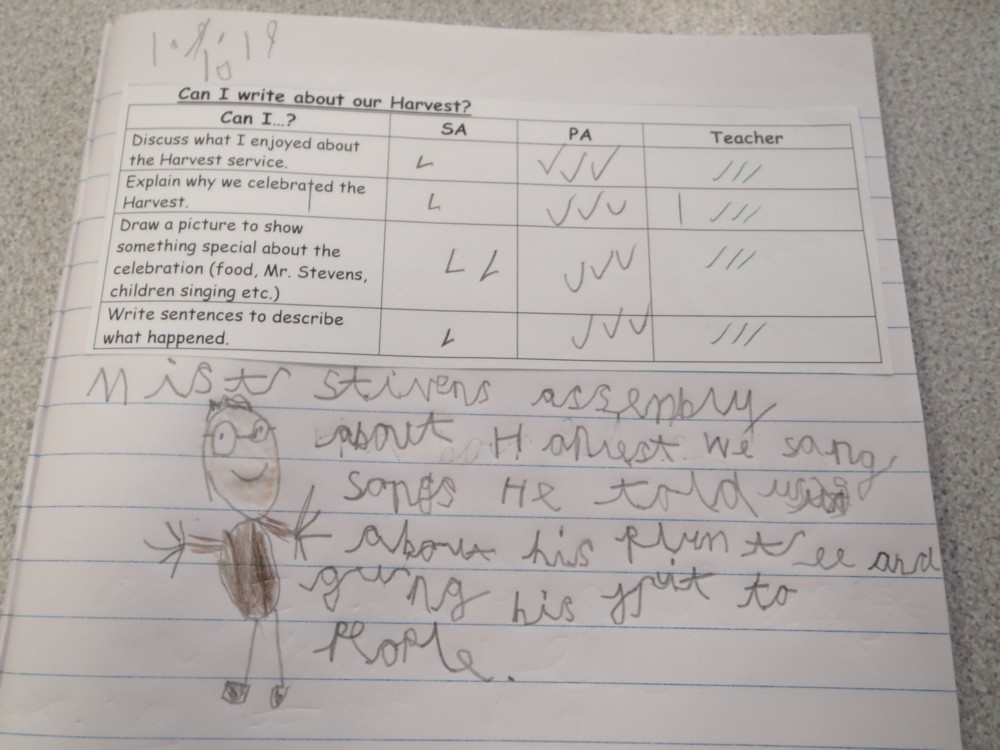 1.10.19
Can I write about our Harvest?
Can I...? SA PA Teacher
Discuss what I enjoyed about
the Harvest service.
Explain why we celebrated the
Harvest.
Draw a picture to show
something special about the
celebration (food, Mr. Stevens,
children singing etc.)
Write sentences to describe
what happened.
Mistr stivens assembly
about Harvest we sang
songs He told us
about his plum tree and
giving his fruit to
People.